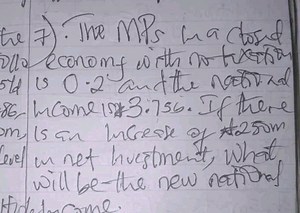 the 7). The MPs in a closed
economy with no taxation
is 0.2 and the national
income is 3.756. If there
is an increase of 250m
in net investment, what
will be the new national
income.